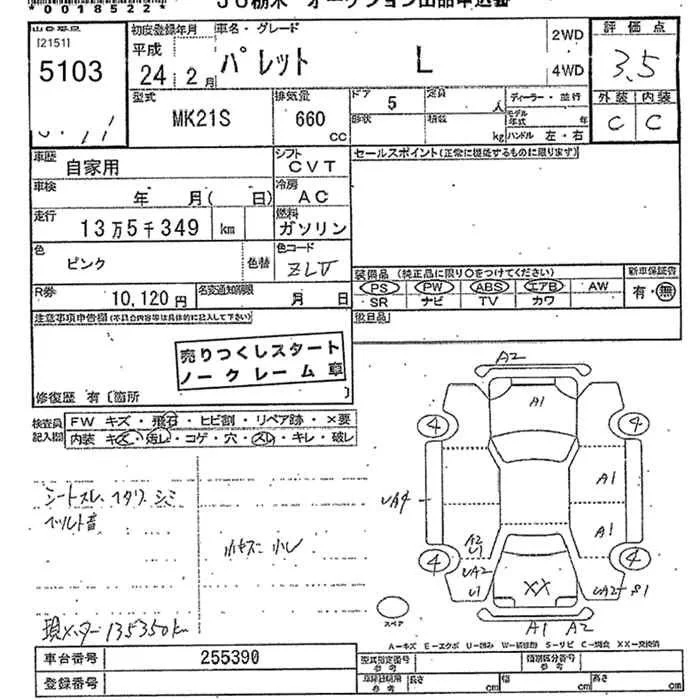 *0018522*
JU栃木 オークション出品申込書
[2151]
5103
初度登録年月
平成
24年 2月
車名・グレード
パレット L
2WD
4WD
評価点
3.5
外装 内装
C C
型式
MK21S
排気量
660
CC
ドア
5
定員
人
形状
積載
kg
ディーラー・並行
モデル年式 年
ハンドル 左・右
車歴
自家用
シフト
CVT
セールスポイント(正常に機能するものに限ります)
車検
年 月( 日)
冷房
AC
走行
13万5千349 km
燃料
ガソリン
色
ピンク
色替
色コード
ZLV
装備品(純正品に限り○をつけてください)
新車保証書
PS PW ABS エアB AW
SR ナビ TV カワ
有・無
R券
10,120円
名変通知期限
月 日
注意事項申告欄(不具合内容等は具体的に記入して下さい)
後日品
売りつくしスタート
ノークレーム車
修復歴 有〔箇所 〕
検査員記入欄
FW キズ・飛石・ヒビ割・リペア跡・×要
内装 キズ・汚レ・コゲ・穴・スレ・キレ・破レ
シートスレ、ヘタリ、シミ
ベルト音
小キズ 小レ
現メーター 135350km
A2
A1
4 4
A1
UA4
A1
A2
U1
4 4
UA2
U1
XX
UA2 S1
A1 A2
スペア
A-キズ E-エクボ U-凹み W-補修跡 S-サビ C-腐食 XX-交換済
車台番号
255390
型式指定番号
参考
類別区分番号
参考
登録番号
車検証寸法
参考
長さ cm
幅 cm
高さ cm